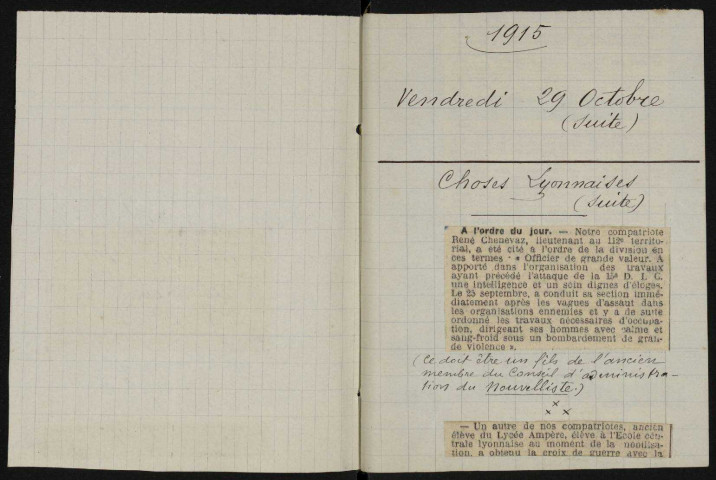 1915
Vendredi 29 Octobre
(suite)
Choses Lyonnaises
(suite)
A l'ordre du jour. — Notre compatriote
René Chenevaz, lieutenant au 112e territo-
rial, a été cité à l'ordre de la division en
ces termes : « Officier de grande valeur. A
apporté dans l'organisation des travaux
ayant précédé l'attaque de la 15e D. I. C.
une intelligence et un soin dignes d'éloges.
Le 25 septembre, a conduit sa section immé-
diatement après les vagues d'assaut dans
les organisations ennemies et y a de suite
ordonné les travaux nécessaires d'occupa-
tion, dirigeant ses hommes avec calme et
sang-froid sous un bombardement de gran-
de violence ».
(Ce doit être un fils de l'ancien
membre du Conseil d'administra-
tion du Nouvelliste.)
x
x x
— Un autre de nos compatriotes, ancien
élève du Lycée Ampère, élève à l'Ecole cen-
trale lyonnaise au moment de la mobilisa-
tion, a obtenu la croix de guerre avec la